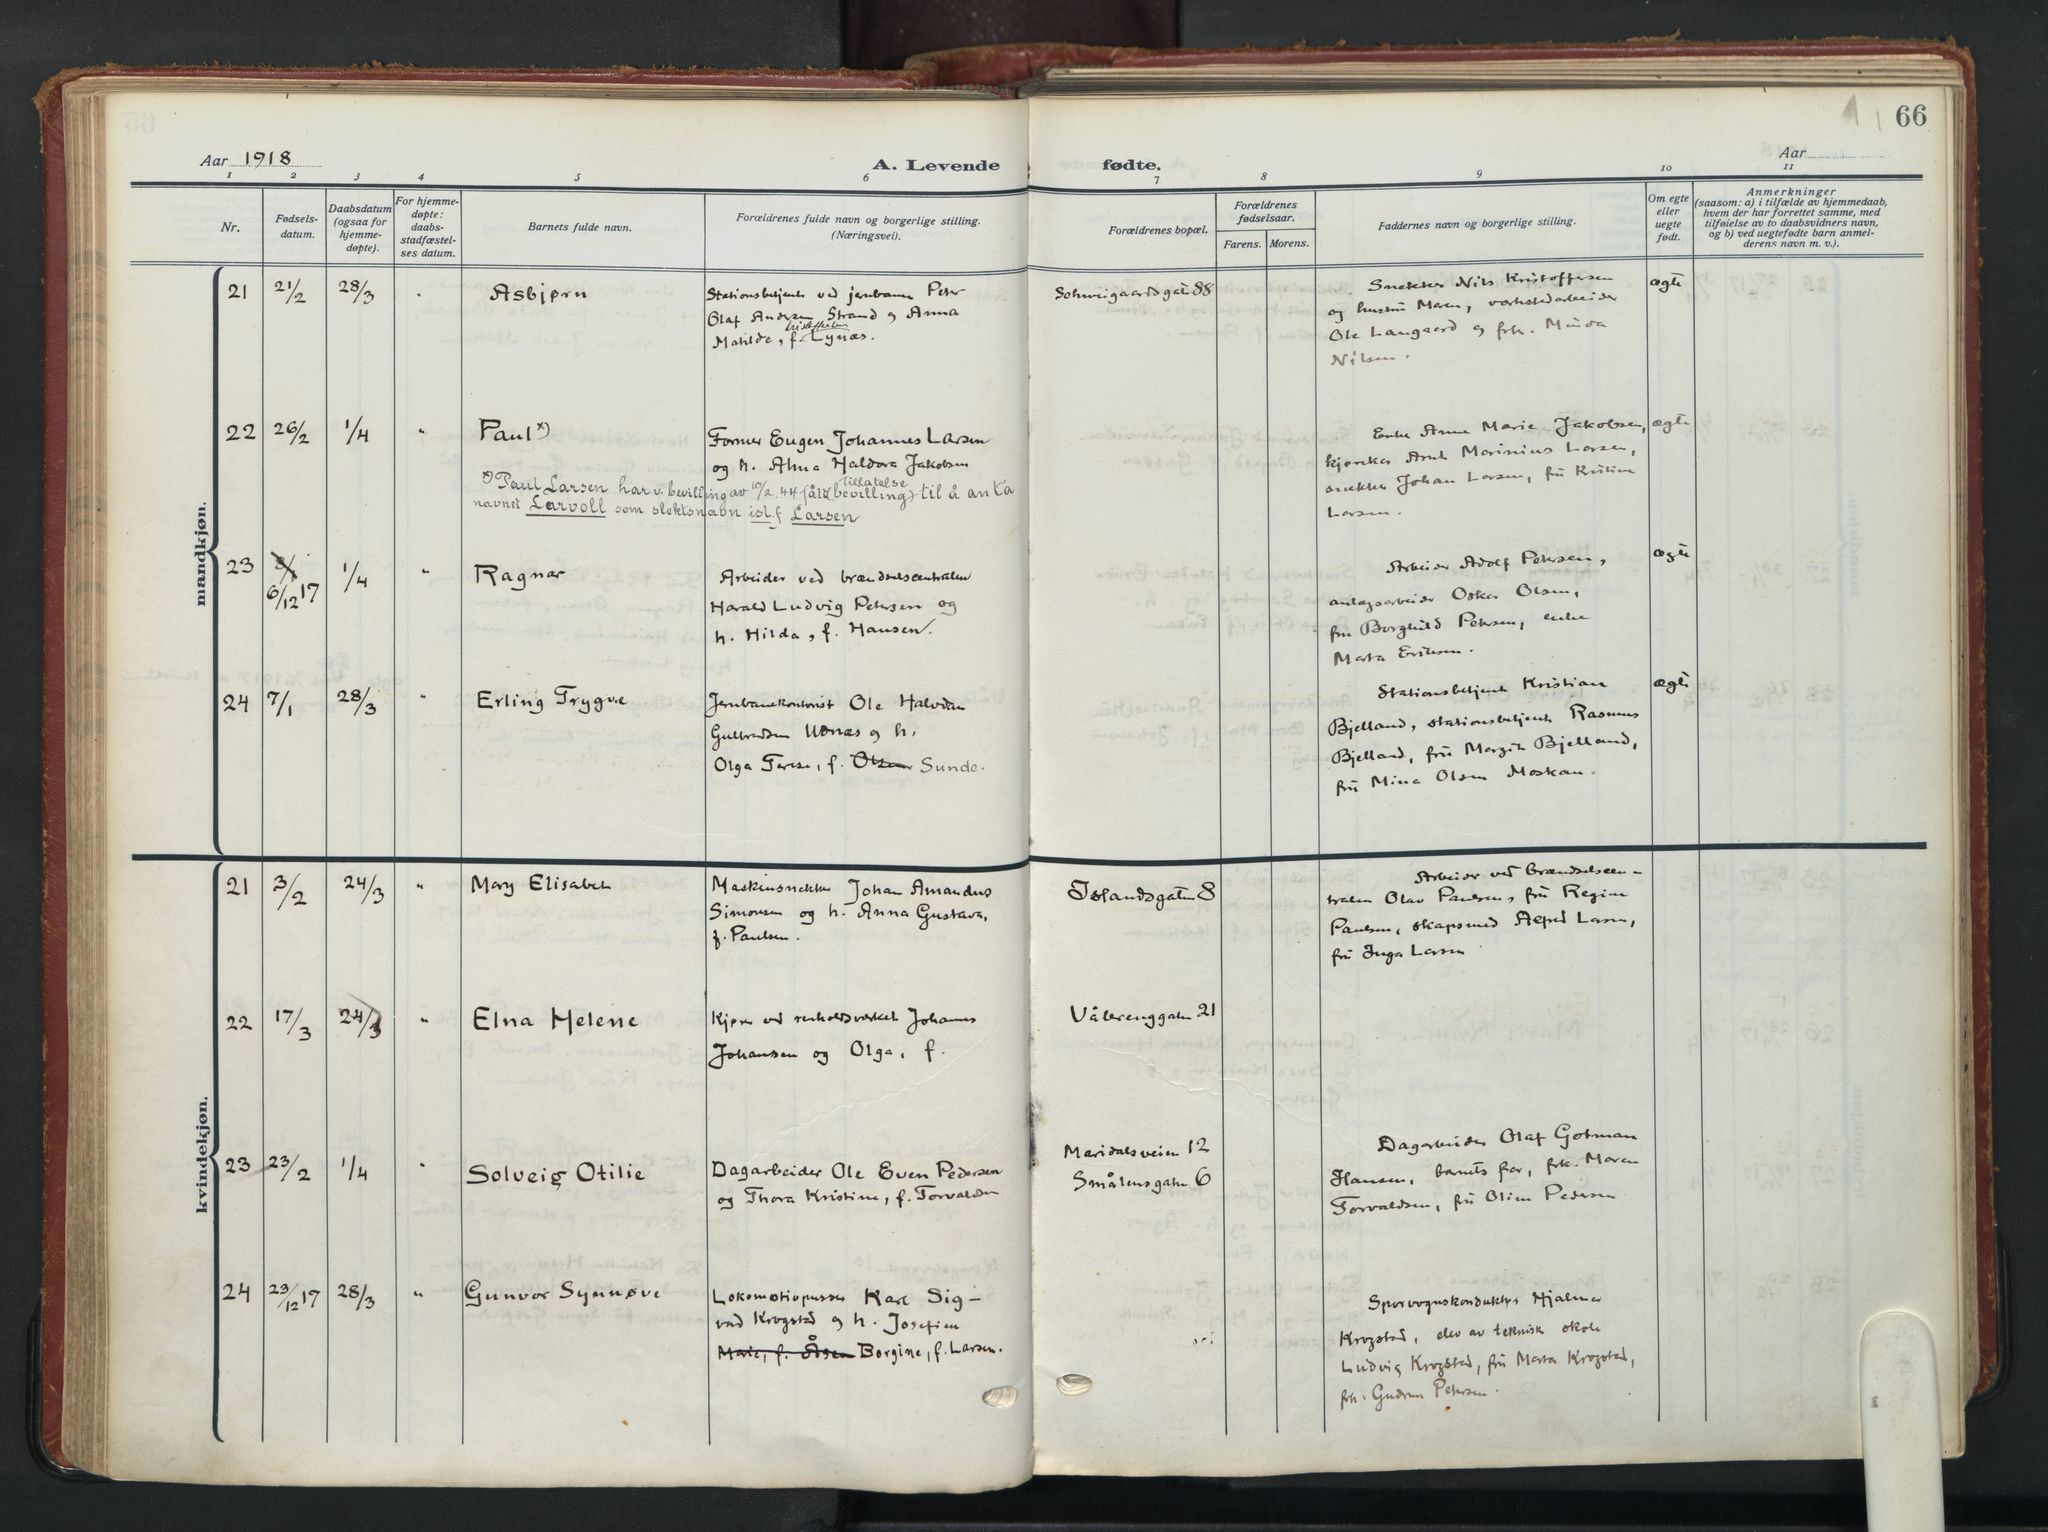 66
Aar 1918
A. Levende fødte.
Aar
1 2 3 4 5 6 7 8 9 10 11
Nr.
Fødsels-
datum.
Daabsdatum
(ogsaa for
hjemme-
døpte).
For hjemme-
døpte:
daabs-
stadfæstel-
ses datum.
Barnets fulde navn.
Forældrenes fulde navn og borgerlige stilling.
(Næringsvei).
Forældrenes bopæl.
Forældrenes
fødselsaar.
Farens. Morens.
Faddernes navn og borgerlige stilling.
Om egte
eller
uegte
født.
Anmerkninger
(saasom: a) i tilfælde av hjemmedaab,
hvem der har forrettet samme, med
tilføielse av to daabsvidners navn,
og b) ved uegtefødte barn anmel-
derens navn m. v.).
mandkjøn.
21 21/2 28/3 " Asbjørn
Stationsbetjent ved jernbanen Peter
Olaf Andersen Strand og Anna
Matilde, f. Lynæs.
Schweigaardsgaten 88
Snekker Nils Kristoffersen
og hustru Maren, verkstedarbeider
Ole Laugaard og frk. Minda
Nilsen.
ægte
22 26/2 1/4 " Paul x)
Former Eugen Johannes Larsen
og h. Alma Haldora Jakobsen
x) Paul Larsen har v. bevilling av 10/2.44 (bevilling) til å anta
tillatelse
navnet Larvoll som slektsnavn ist.f. Larsen
Enke Anne Marie Jakobsen,
kjørekar Arnt Marinius Larsen,
snekker Johan Larsen, fru Kristine
Larsen.
ægte
23 6/12 17 1/4 " Ragnar
Arbeider ved brændselscentralen
Harald Ludvig Petersen og
h. Hilda, f. Hansen.
Arbeider Adolf Petersen,
anlægsarbeider Oskar Olsen,
fru Borghild Petersen, enke
Marta Eriksen.
ægte
24 7/1 28/3 " Erling Trygve
Jernbanekontorist Ole Halvdan
Gulbrandsen Udnæs og h.
Olga Terese, f. Olsen Sunde.
Stationsbetjent Kristian
Bjelland, stationsbetjent Rasmus
Bjelland, fru Margit Bjelland,
fru Mina Olsen Moskau.
ægte
kvindekjøn.
21 3/2 24/3 " Mary Elisabet
Maskinsnekker Johan Amandus
Simonsen og h. Anna Gustava,
f. Paulsen.
Islandsgaten 8
Arbeider ved brændselscen-
tralen Olav Paulsen, fru Regine
Paulsen, skapsmed Alfred Larsen,
fru Inga Larsen
22 17/3 24/3 " Elna Helene
Kjører ved renholdsverket Johannes
Johansen og Olga, f.
Vålerenggaten 21
23 23/2 1/4 " Solveig Otilie
Dagarbeider Ole Even Pedersen
og Thora Kristine, f. Torvaldsen
Maridalsveien 12
Smålensgaten 6
Dagarbeider Olaf Gotman
Hansen, barnets far, frk. Maren
Torvaldsen, fru Oline Pedersen
24 23/12 17 28/3 " Gunvor Synnøve
Lokomotivpusser Karl Sig-
vard Krogstad og h. Josefine
Marie, f. Åsen Borgine, f. Larsen.
Sporvognskonduktør Hjalmar
Krogstad, elev av teknisk skole
Ludvig Krogstad, fru Marta Krogstad,
frk. Gudrun Petersen.